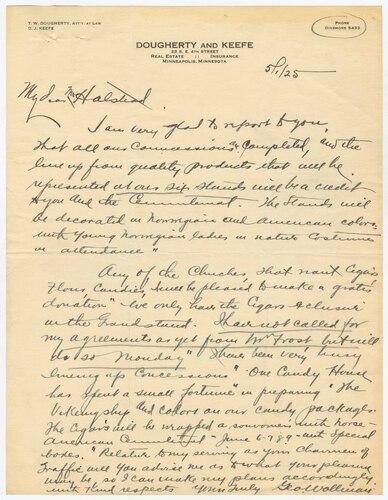 T. W. DOUGHERTY, ATT'Y AT LAW
D. J. KEEFE
PHONE
DINSMORE 5433
DOUGHERTY AND KEEFE
22 S. E. 4TH STREET
REAL ESTATE INSURANCE
MINNEAPOLIS, MINNESOTA
5/1/25
My dear Mr Halstead.
I am very glad to report to you
that all our concessions "Completed, and the
line up from quality products that will be
represented at our six stands will be a credit
to you and the Centennial. The stands will
be decorated in Norwegian and American colors
with young Norwegian ladies in native Costumes
in attendance"
Any of the Churches, that want Cigars
Flour, Candies, I will be pleased to make a "gratis
donation" - We only have the Cigars exclusive
in the Grand stand. I have not called for
my agreements as yet from Mr Frost but will
do so Monday" I have been very busy
lineing up Concessions" One Candy House
has spent a small fortune in preparing "The
Viking ship and colors on our candy packages.
The Cigars will be wrapped a souvenir with Norse-
American Centennial" June 6-7-8-9 - with special
boxes." Relative to my serving as your chairman of
Traffic will you advise me as to what your pleasure
may be, so I can make my plans accordingly.
With kind respects Yours Truly Geo Wellman